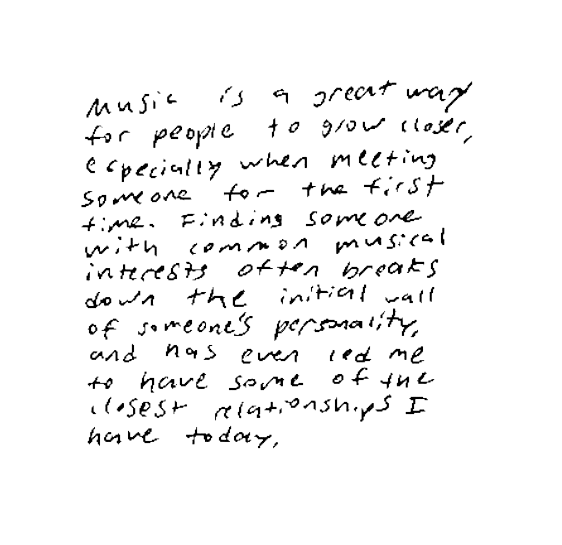 Music is a great way
for people to grow closer,
especially when meeting
someone for the first
time. Finding someone
with common musical
interests often breaks
down the initial wall
of someone's personality,
and has even led me
to have some of the
closest relationships I
have today.